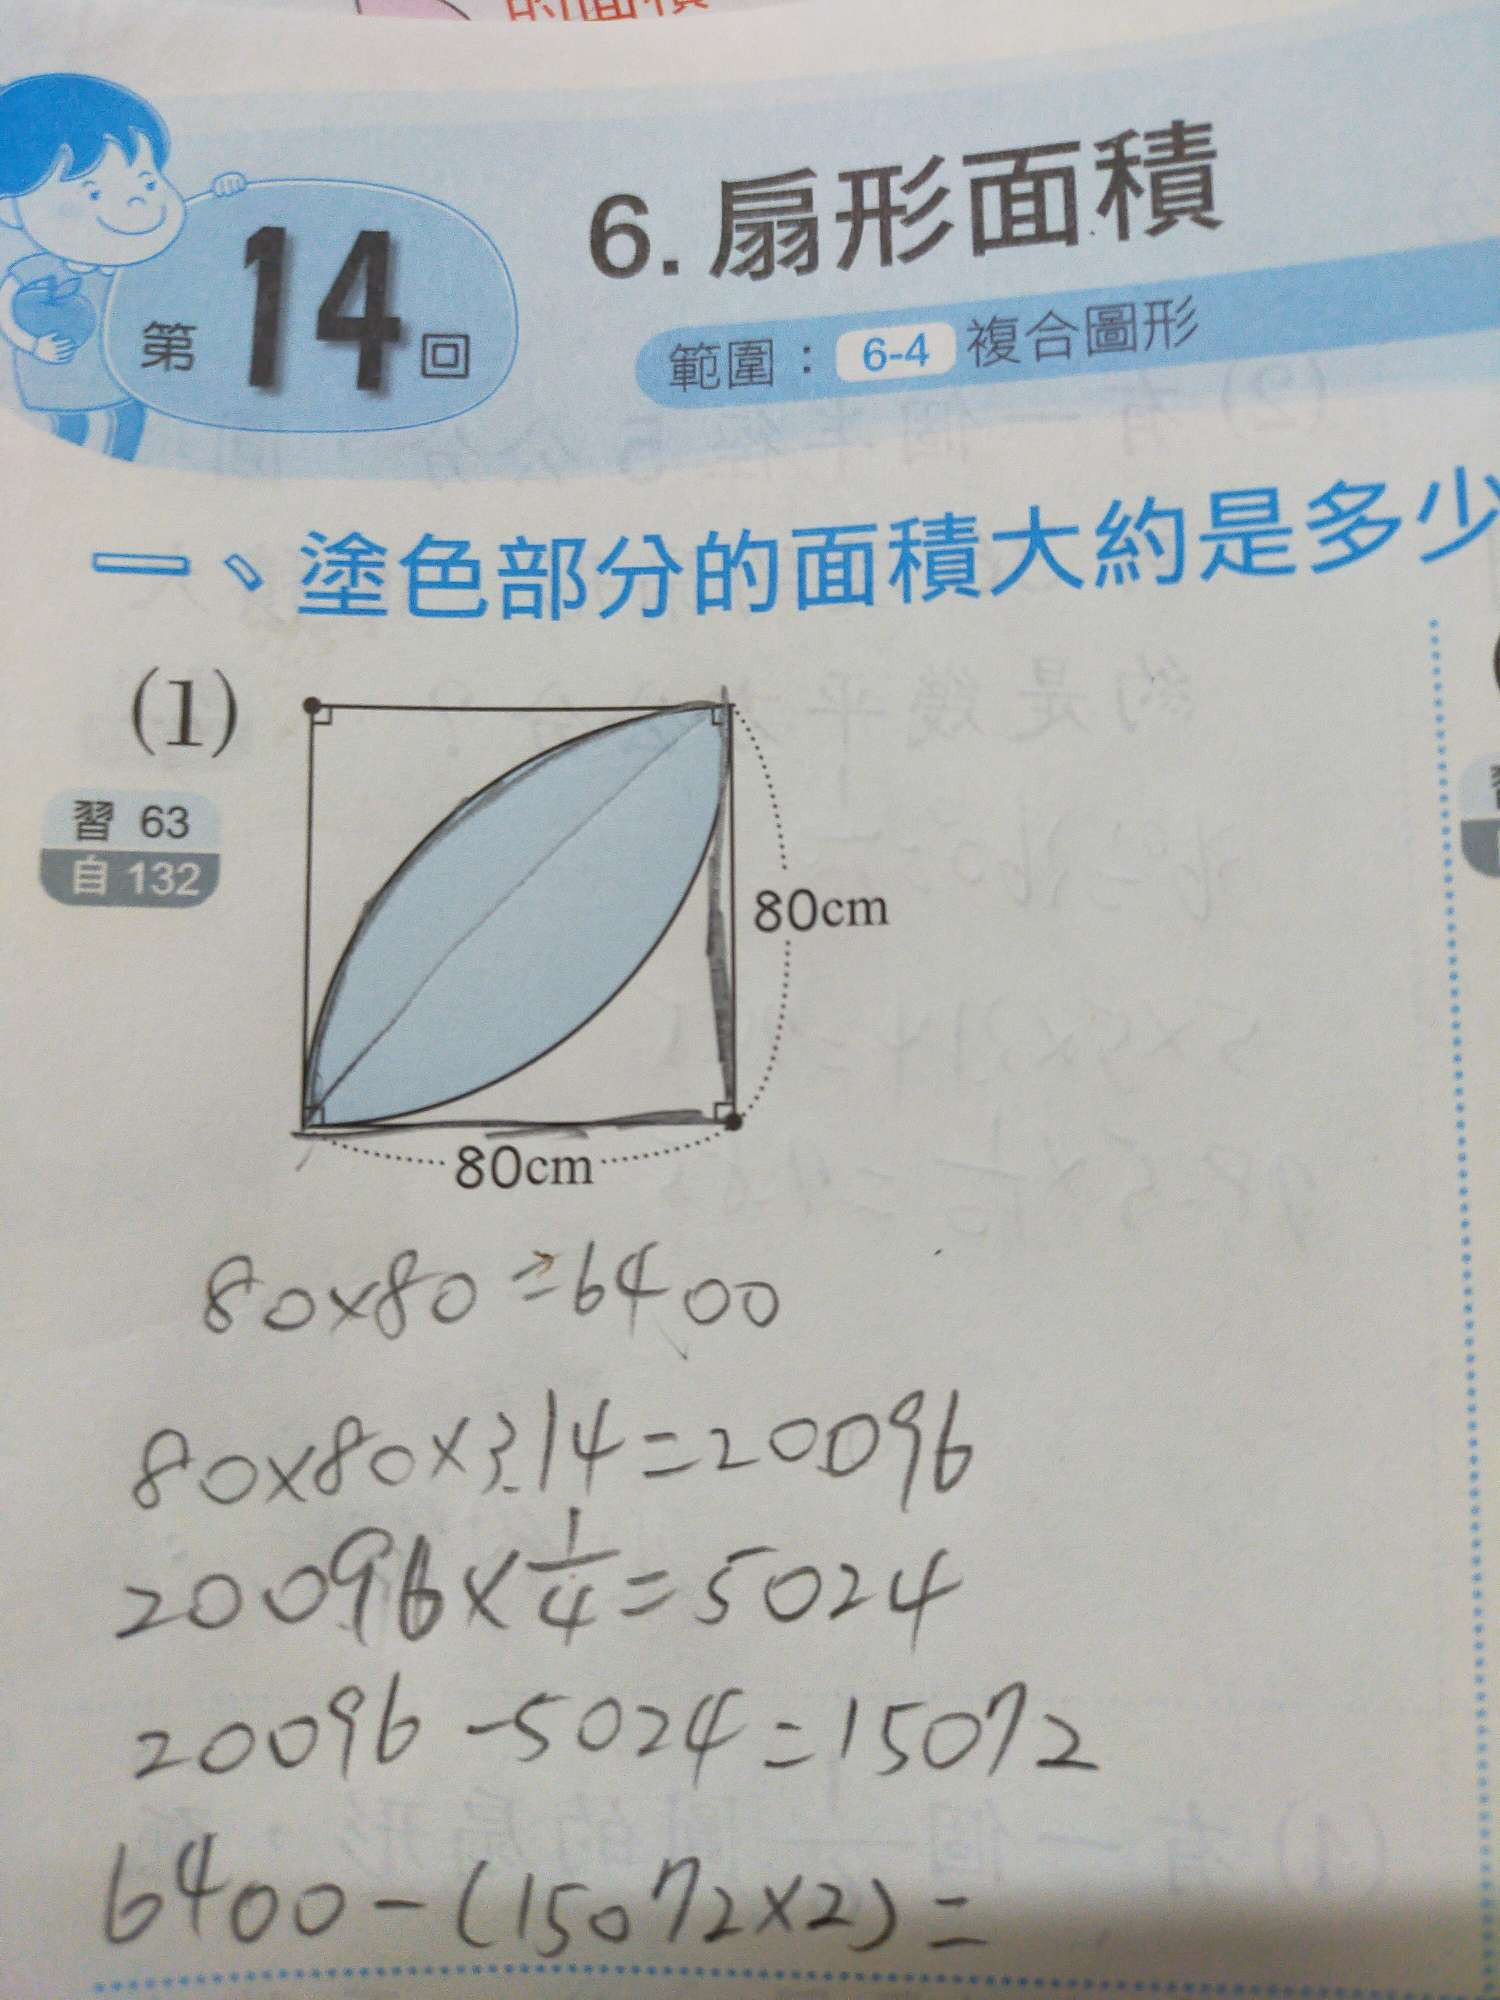 的面積
第 14 回
6. 扇形面積
範圍： 6-4 複合圖形
一、塗色部分的面積大約是多少
(1)
習 63
自 132
80cm
80cm
80×80=6400
80×80×3.14=20096
20096×1/4=5024
20096-5024=15072
6400-(15072×2)=